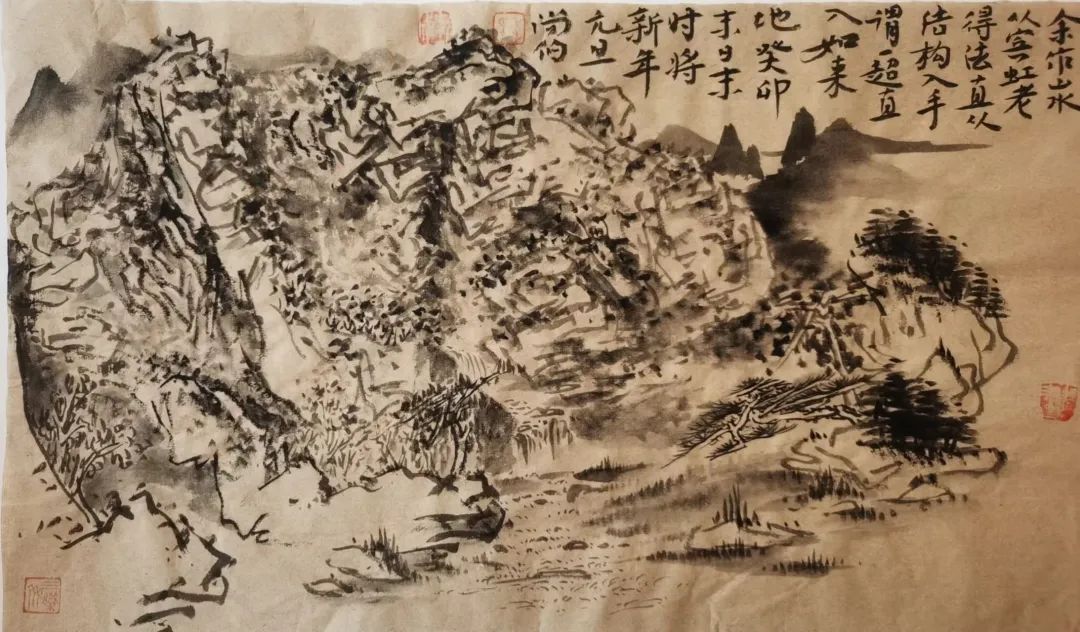 余作山水
从宾虹老
得法直从
结构入手
谓一超直
入如来
地癸卯
末日末
时将
新年
元旦